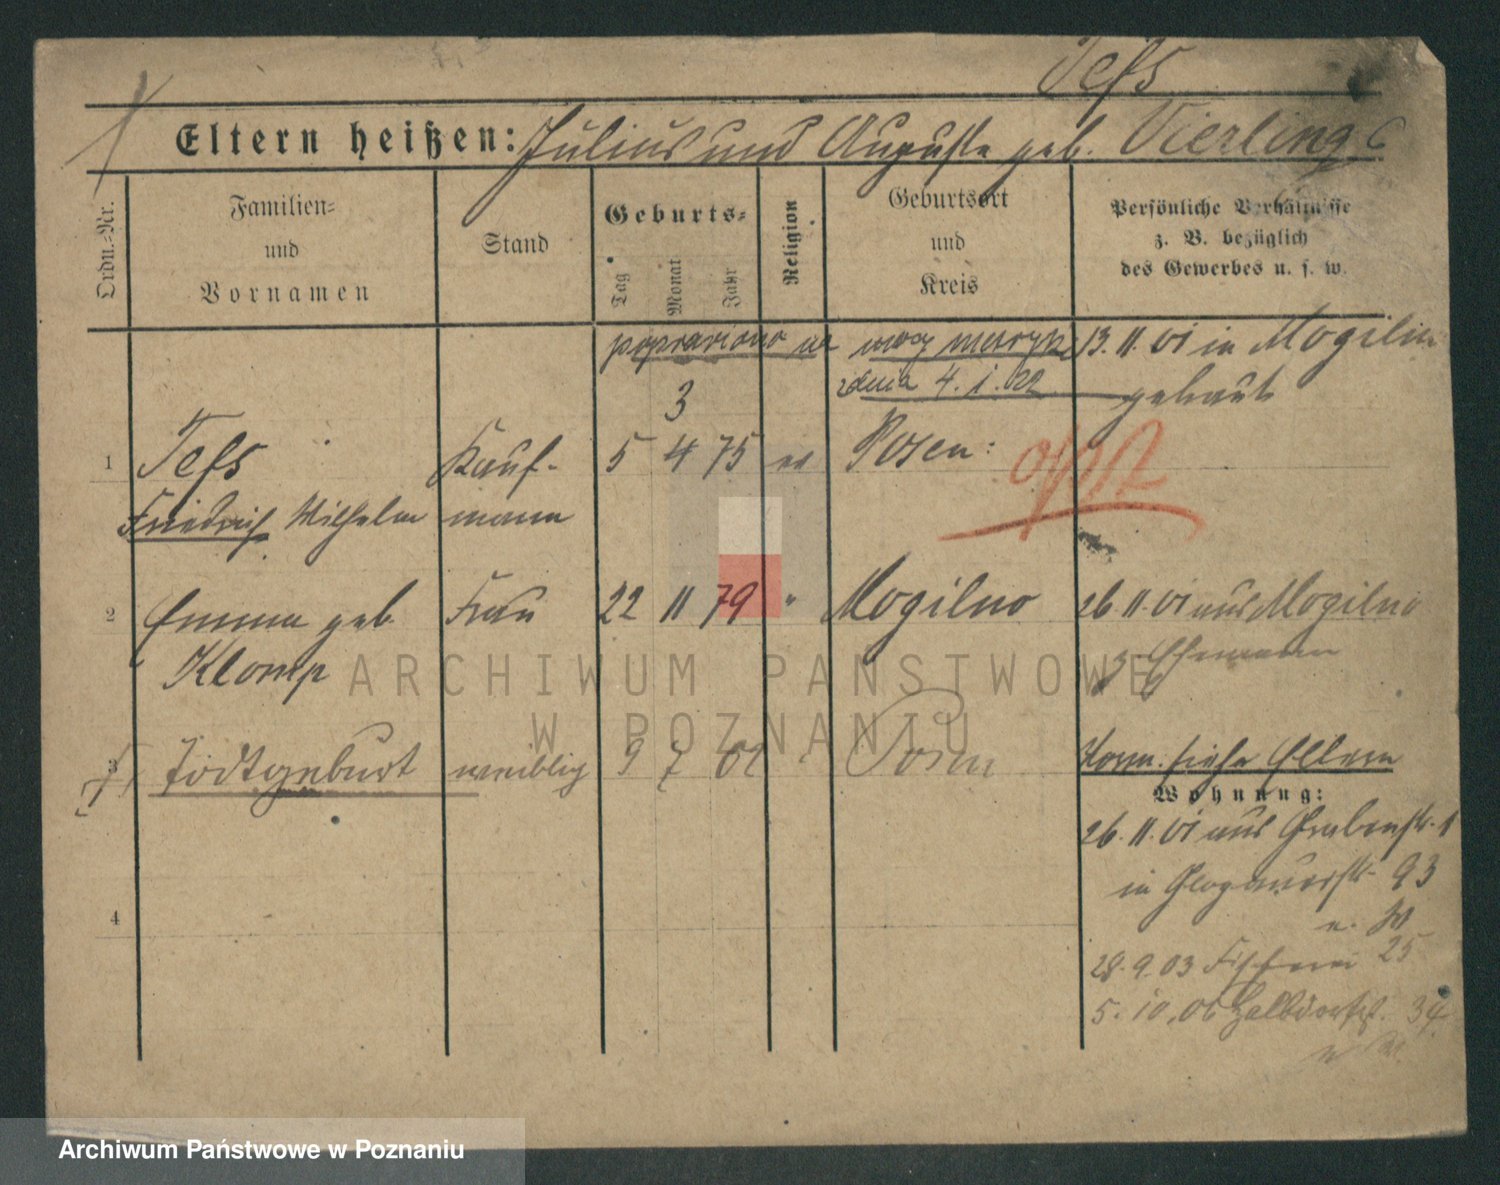 Tefs
Eltern heißen: Julius und Auguste geb. Vierling
Ordn.-Nr.
Familien-
und
Vornamen
Stand
Geburts-
Tag
Monat
Jahr
Religion
Geburtsort
und
Kreis
Persönliche Verhältnisse
z. B. bezüglich
des Gewerbes u. s. w.
poprawiono na mocy metryki
z dnia 4.1.22
13.11.01 in Mogilno
getraut
3
1 Tefs Kauf- 5 4 75 ev Posen:
Friedrich Wilhelm mann
2 Emma geb. Frau 22 11 79 " Mogilno 26.11.01 aus Mogilno
Klomp z. Ehemann
3 Todtgeburt weiblig 9 7 02 Posen Vorm. siehe Eltern
Wohnung:
26.11.01 aus Grabenstr. 1
in Glogauerstr. 93
n. W
28.9.03 Fischerei 25
5.10.06 Halbdorfst. 34
n W.
4
ARCHIWUM PAŃSTWOWE
W POZNANIU
Archiwum Państwowe w Poznaniu